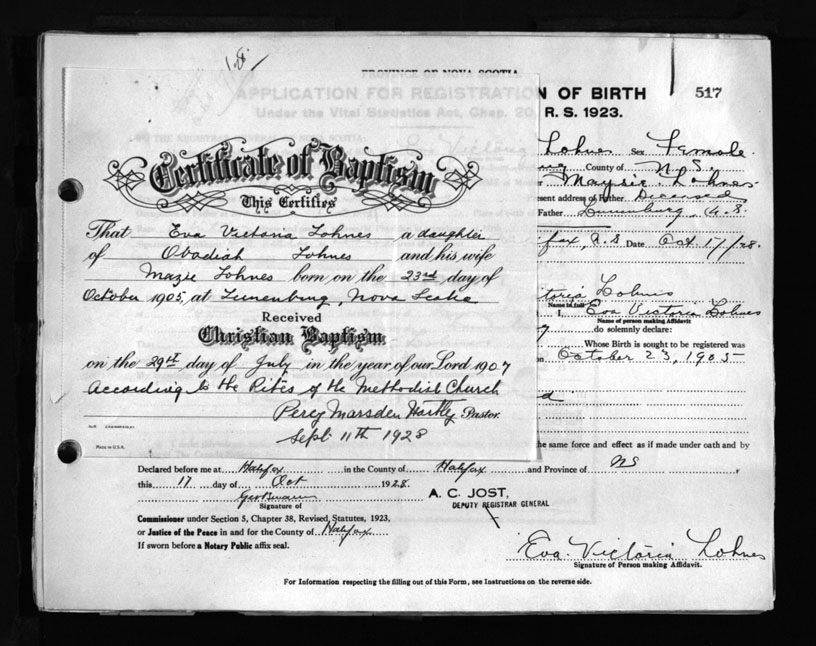 1.8.
PROVINCE OF NOVA SCOTIA
APPLICATION FOR REGISTRATION OF BIRTH 517
Under the Vital Statistics Act, Chap. 20, R. S. 1923.
Lohnes Sex Female
County of N. S.
Maysie Lohnes
Present address of Father Deceased
Father Lunenburg, N. S.
Halifax, N. S. Date Oct 17/28.
Certificate of Baptism
This Certifies
That Eva Victoria Lohnes a daughter
of Obadiah Lohnes and his wife
Mazie Lohnes born on the 23rd day of
October 1905, at Lunenburg, Nova Scotia
Received
Christian Baptism
on the 29th day of July in the year of our Lord 1907
According to the Rites of the Methodist Church
Percy Marsden Pastor.
Sept 11th 1928
Made in U.S.A.
Victoria Lohnes
Name in full
I, Eva Victoria Lohnes
Name of person making Affidavit
do solemnly declare:
Whose Birth is sought to be registered was
on October 23, 1905
the same force and effect as if made under oath and by
Declared before me at Halifax in the County of Halifax and Province of NS
this 17 day of Oct 1928.
Signature of
A. C. JOST,
DEPUTY REGISTRAR GENERAL
Commissioner under Section 5, Chapter 38, Revised Statutes, 1923,
or Justice of the Peace in and for the County of Halifax
If sworn before a Notary Public affix seal.
Eva Victoria Lohnes
Signature of Person making Affidavit.
For Information respecting the filling out of this Form, see Instructions on the reverse side.